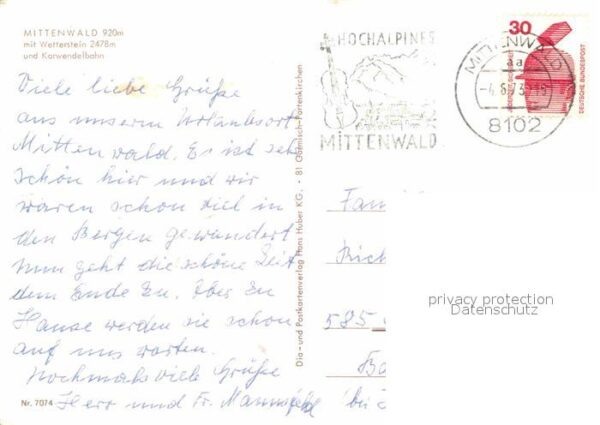 MITTENWALD 920m
mit Wetterstein 2478m
und Karwendelbahn
Viele liebe Grüße
aus unserm Urlaubsort
Mittenwald. Es ist sehr
schön hier und wir
waren schon viel in
den Bergen gewandert
nun geht die schöne Zeit
dem Ende zu. Aber zu
Hause werden sie schon
auf uns warten.
Nochmals viele Grüße
Herr und Fr.
Nr. 7074
Dia- und Postkartenverlag Hans Huber KG. · 81 Garmisch-Partenkirchen
HOCHALPINES
MITTENWALD
MITTENWALD
aa
8102
30
DEUTSCHE BUNDESPOST
Fam
Rich
585
privacy protection
Datenschutz